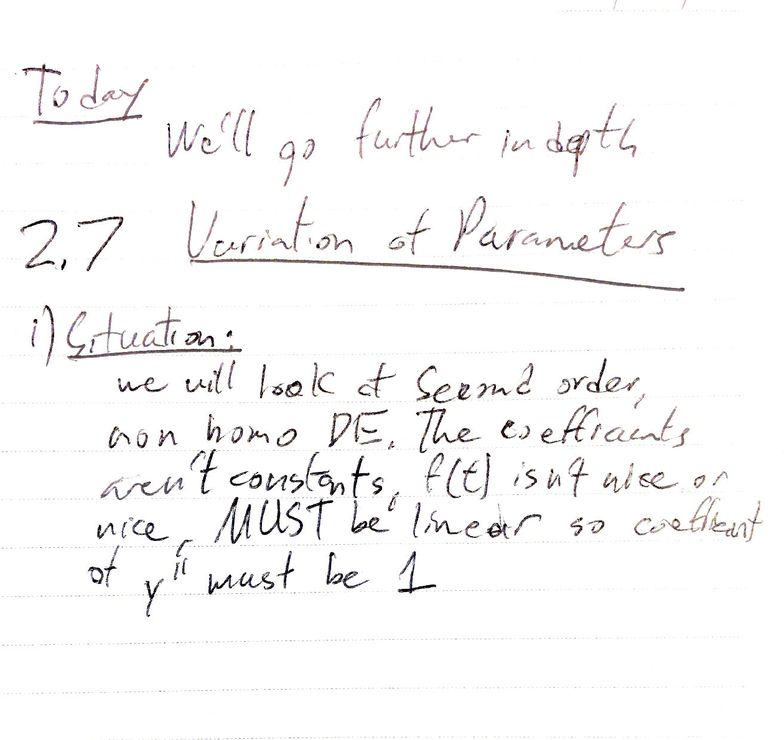 Today
We'll go further in depth
2.7 Variation of Parameters
i) Situation:
we will look at Second order,
non homo DE. The coefficients
aren't constants, f(t) isn't nice or
nice, MUST be linear so coefficient
of y" must be 1